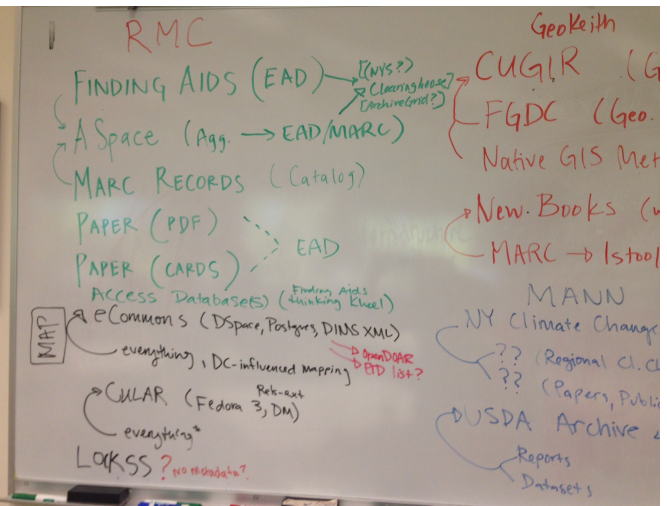 RMC
FINDING AIDS (EAD)
[(NYS?)
Clearinghouse]
[ArchiveGrid?]
ASpace (Agg. → EAD/MARC)
MARC RECORDS (Catalog)
PAPER (PDF)
PAPER (CARDS)
EAD
ACCESS DATABASE(S) (Finding Aids
thinking Kheel)
MAP
eCommons (DSpace, Postgres, DIMS XML)
everything, DC-influenced mapping
OpenDOAR
ETD list?
CULAR (Fedora 3, DM)
Rels-ext
everything*
LOCKSS ? No metadata?
GeoKeith
CUGIR (G
FGDC (Geo.
Native GIS Met
New. Books (
MARC → 1stool
MANN
NY Climate Change
?? (Regional Cl. Cl
?? (Papers, Public
USDA Archive
Reports
Datasets